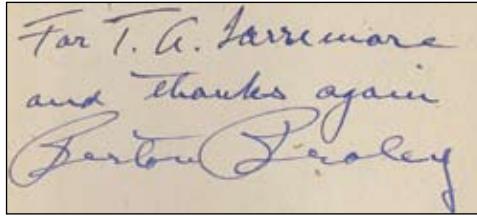 For T. A. Larremore
and thanks again
Berton Braley